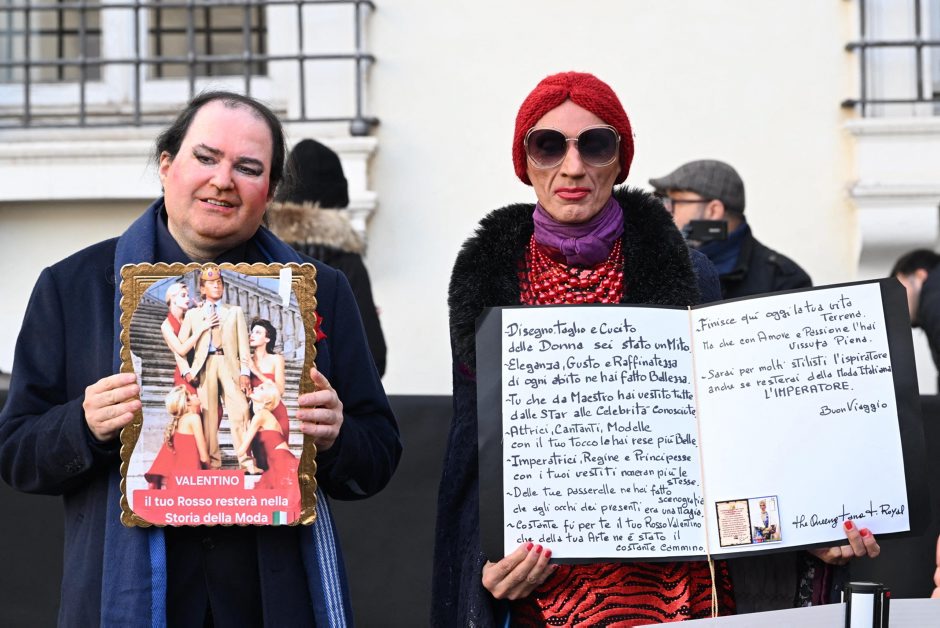 VALENTINO
il tuo Rosso resterà nella
Storia della Moda
-Disegno, Taglio e Cucito
delle Donna sei stato un Mito.
-Eleganza, Gusto e Raffinatezza
di ogni abito ne hai fatto Bellezza.
-Tu che da Maestro hai vestito tutte
dalle STar alle Celebrità Conosciute
-Attrici, Cantanti, Modelle
con il tuo tocco le hai rese più Belle.
-Imperatrici, Regine e Principesse
con i tuoi vestiti non eran più le
stesse.
-Delle tue passerelle ne hai fatto
scenografia
che agli occhi dei presenti era una Magia.
-Costante fù per te il tuo Rosso Valentino
che della tua Arte ne è stato il
costante Cammino.
-Finisce qui oggi la tua vita
Terrena.
Ma che con Amore e Passione l'hai
vissuta Piena.
-Sarai per molti stilisti l'ispiratore
anche se resterai della Moda Italiana
L'IMPERATORE.
Buon Viaggio